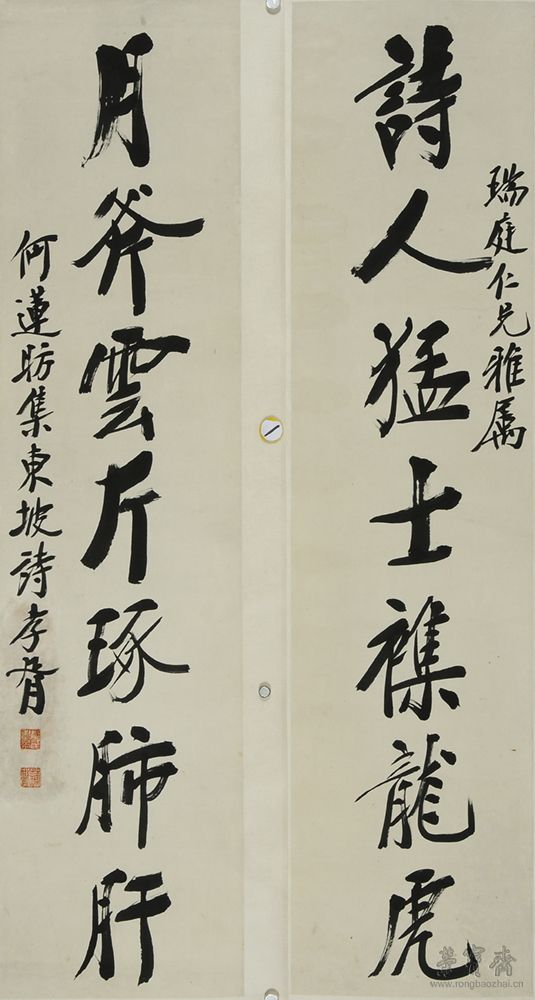 瑞庭仁兄雅属
詩人猛士襍龍虎
月斧雲斤琢肺肝
何蓮舫集東坡詩孝胥
榮寳齋
www.rongbaozhai.cn